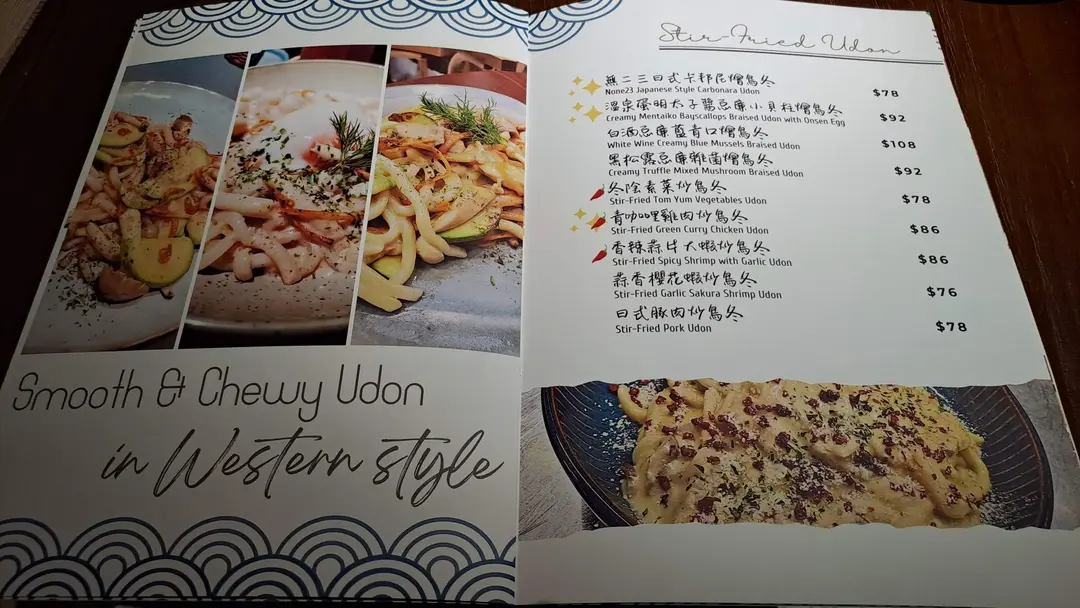 Smooth & Chewy Udon
in Western style
Stir-Fried Udon
無二三日式卡邦尼燴烏冬
None23 Japanese Style Carbonara Udon
$78
溫泉蛋明太子醬忌廉小貝柱燴烏冬
Creamy Mentaiko Bayscallops Braised Udon with Onsen Egg
$92
白酒忌廉藍青口燴烏冬
White Wine Creamy Blue Mussels Braised Udon
$108
黑松露忌廉雜菌燴烏冬
Creamy Truffle Mixed Mushroom Braised Udon
$92
冬陰素菜炒烏冬
Stir-Fried Tom Yum Vegetables Udon
$78
青咖喱雞肉炒烏冬
Stir-Fried Green Curry Chicken Udon
$86
香辣蒜片大蝦炒烏冬
Stir-Fried Spicy Shrimp with Garlic Udon
$86
蒜香櫻花蝦炒烏冬
Stir-Fried Garlic Sakura Shrimp Udon
$76
日式豚肉炒烏冬
Stir-Fried Pork Udon
$78